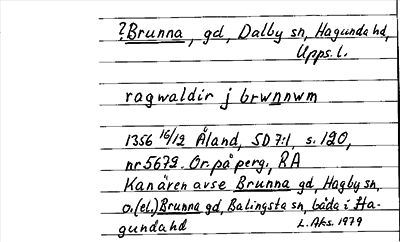 ?Brunna, gd, Dalby sn, Hagunda hd,
Upps. l.
ragwaldir j brwnnwm
1356 16/12 Åland, SD 7:1, s. 120,
nr 5672. Or. på perg., RA
Kan även avse Brunna gd, Hagby sn,
o. (el.) Brunna gd, Balingsta sn, båda i Ha-
gunda hd
L. Aks. 1979